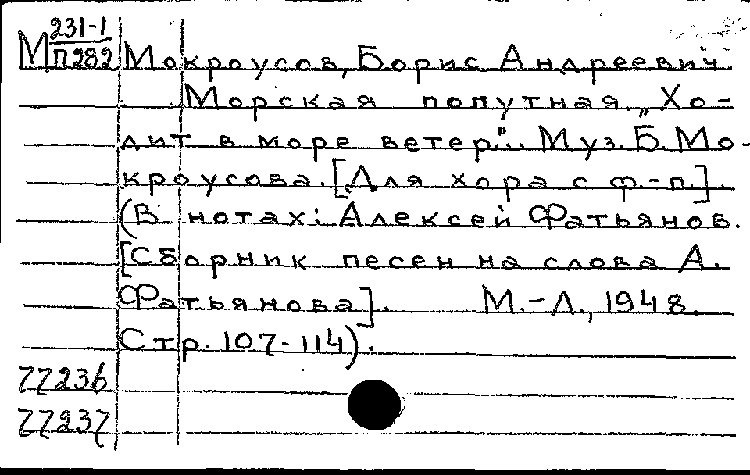 М 231-1
П282 Мокроусов, Борис Андреевич.
Морская попутная. „Хо-
дит в море ветер". Муз. Б. Мо-
кроусова. [Для хора с ф.-п.].
(В нотах: Алексей Фатьянов.
[Сборник песен на слова А.
Фатьянова]. М.-Л., 1948.
Стр. 107-114).
77236
77237